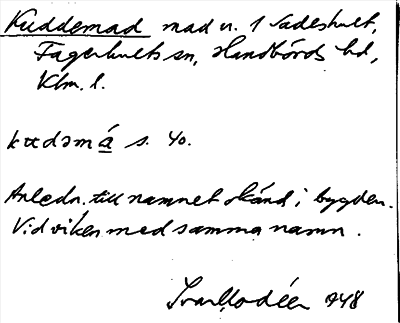 Kuddemad mad u. 1 Sadeshult,
Fagerhults sn, Handbörds hd,
Klm. l.
kudəmá s. 40.
Anledn. till namnet okänd i bygden.
Vid viken med samma namn.
Ivar Modéer 1948